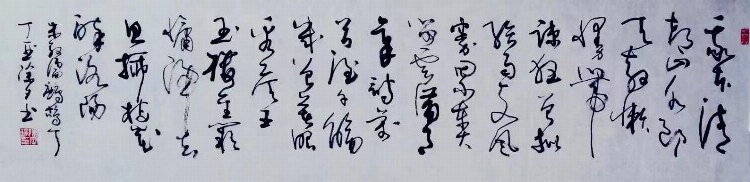 我本清
都山水郎
天教懒
慢带
疏狂曾批
给雨支风
券累奏
留云借月
章诗万
首酒千觞
几曾着眼
看侯王
玉楼金阙
慵归去
且插梅花
醉洛阳
朱敦儒鹧鸪天
丁酉 书